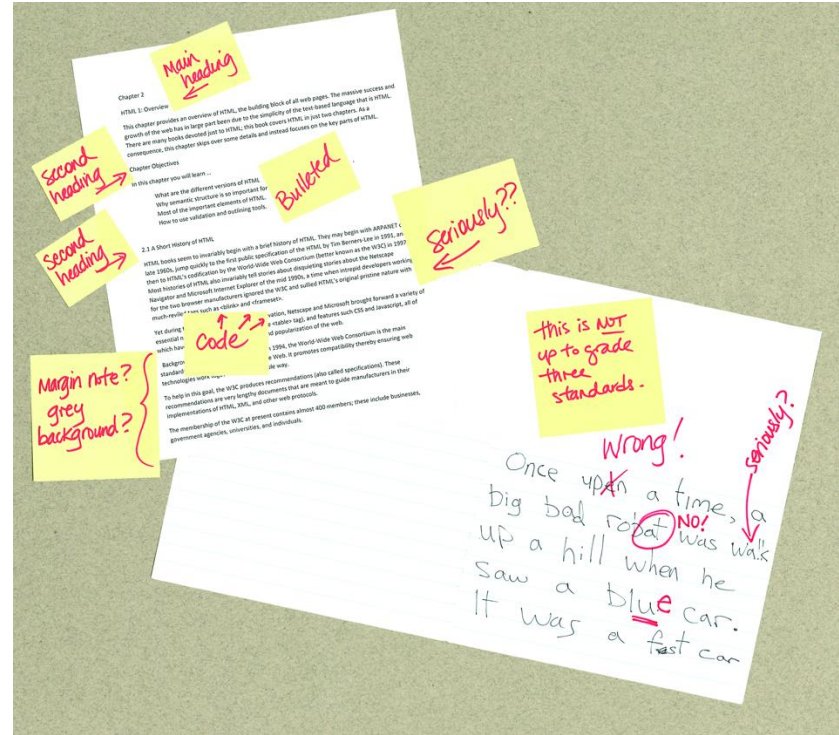 Main
heading
Chapter 2
HTML 1: Overview
This chapter provides an overview of HTML, the building block of all web pages. The massive success and
growth of the web has in large part been due to the simplicity of the text-based language that is HTML.
There are many books devoted just to HTML; this book covers HTML in just two chapters. As a
consequence, this chapter skips over some details and instead focuses on the key parts of HTML.
second
heading
Chapter Objectives
In this chapter you will learn ...
What are the different versions of HTML
Why semantic structure is so important for
Most of the important elements of HTML.
How to use validation and outlining tools.
Bulleted
second
heading
2.1 A Short History of HTML
HTML books seem to invariably begin with a brief history of HTML. They may begin with ARPANET
late 1960s, jump quickly to the first public specification of the HTML by Tim Berners-Lee in 1991, an
then to HTML's codification by the World-Wide Web Consortium (better known as the W3C) in 1997
Most histories of HTML also invariably tell stories about disquieting stories about the Netscape
Navigator and Microsoft Internet Explorer of the mid 1990s, a time when intrepid developers working
for the two browser manufacturers ignored the W3C and sullied HTML's original pristine nature with
much-reviled tags such as <blink> and <frameset>.
Seriously??
Yet during vation, Netscape and Microsoft brought forward a variety of
essential <table> tag), and features such CSS and Javascript, all of
which have d popularization of the web.
Code
Backgro 1994, the World-Wide Web Consortium is the main
standard e Web. It promotes compatibility thereby ensuring web
technologies work way.
To help in this goal, the W3C produces recommendations (also called specifications). These
recommendations are very lengthy documents that are meant to guide manufacturers in their
implementations of HTML, XML, and other web protocols.
The membership of the W3C at present contains almost 400 members; these include businesses,
government agencies, universities, and individuals.
Margin note?
grey
background?
this is NOT
up to grade
three
standards.
Wrong!
seriously?
Once upon a time, a
big bad robat was walk
NO!
up a hill when he
saw a blue car.
It was a fast car